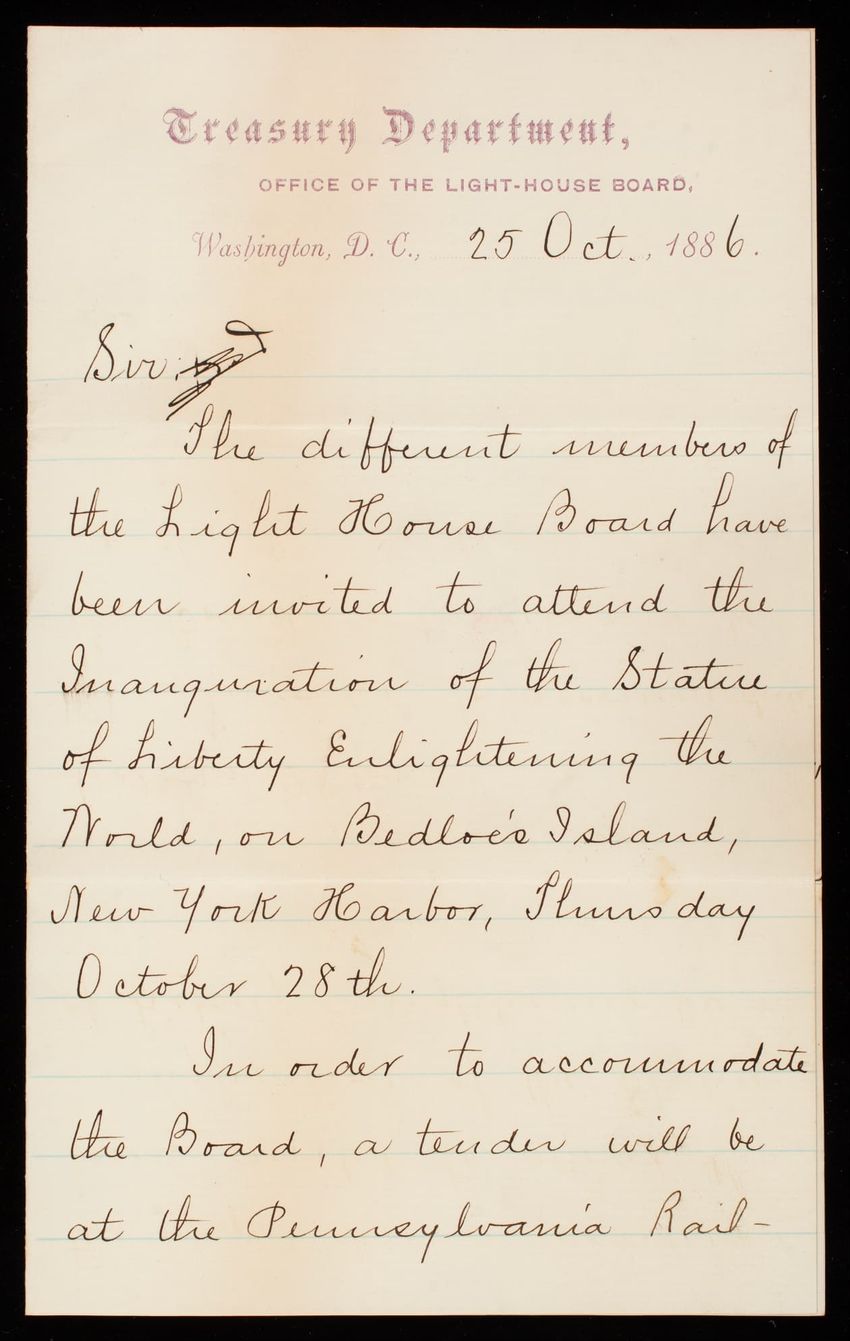 Treasury Department,
OFFICE OF THE LIGHT-HOUSE BOARD,
Washington, D. C., 25 Oct., 1886.
Sir:
The different members of
the Light House Board have
been invited to attend the
Inauguration of the Statue
of Liberty Enlightening the
World, on Bedloe's Island,
New York Harbor, Thursday
October 28th.
In order to accommodate
the Board, a tender will be
at the Pennsylvania Rail-